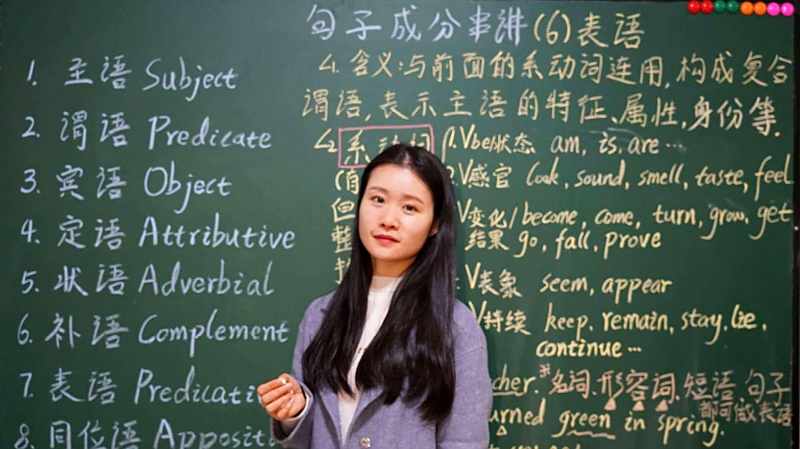 句子成分串讲(6)表语
1. 主语 Subject
2. 谓语 Predicate
3. 宾语 Object
4. 定语 Attributive
5. 状语 Adverbial
6. 补语 Complement
7. 表语 Predicati
8. 同位语 Appositi
含义:与前面的系动词连用,构成复合
谓语,表示主语的特征、属性,身份等.
系动词 1. Vbe/状态 am, is, are…
V感官 look, sound, smell, taste, feel
V变化/ become, come, turn, grow, get
结果 go, fall, prove
V表象 seem, appear
V持续 keep, remain, stay, lie,
continue…
cher. *名词、形容词、短语、句子
都可做表语
urned green in spring.